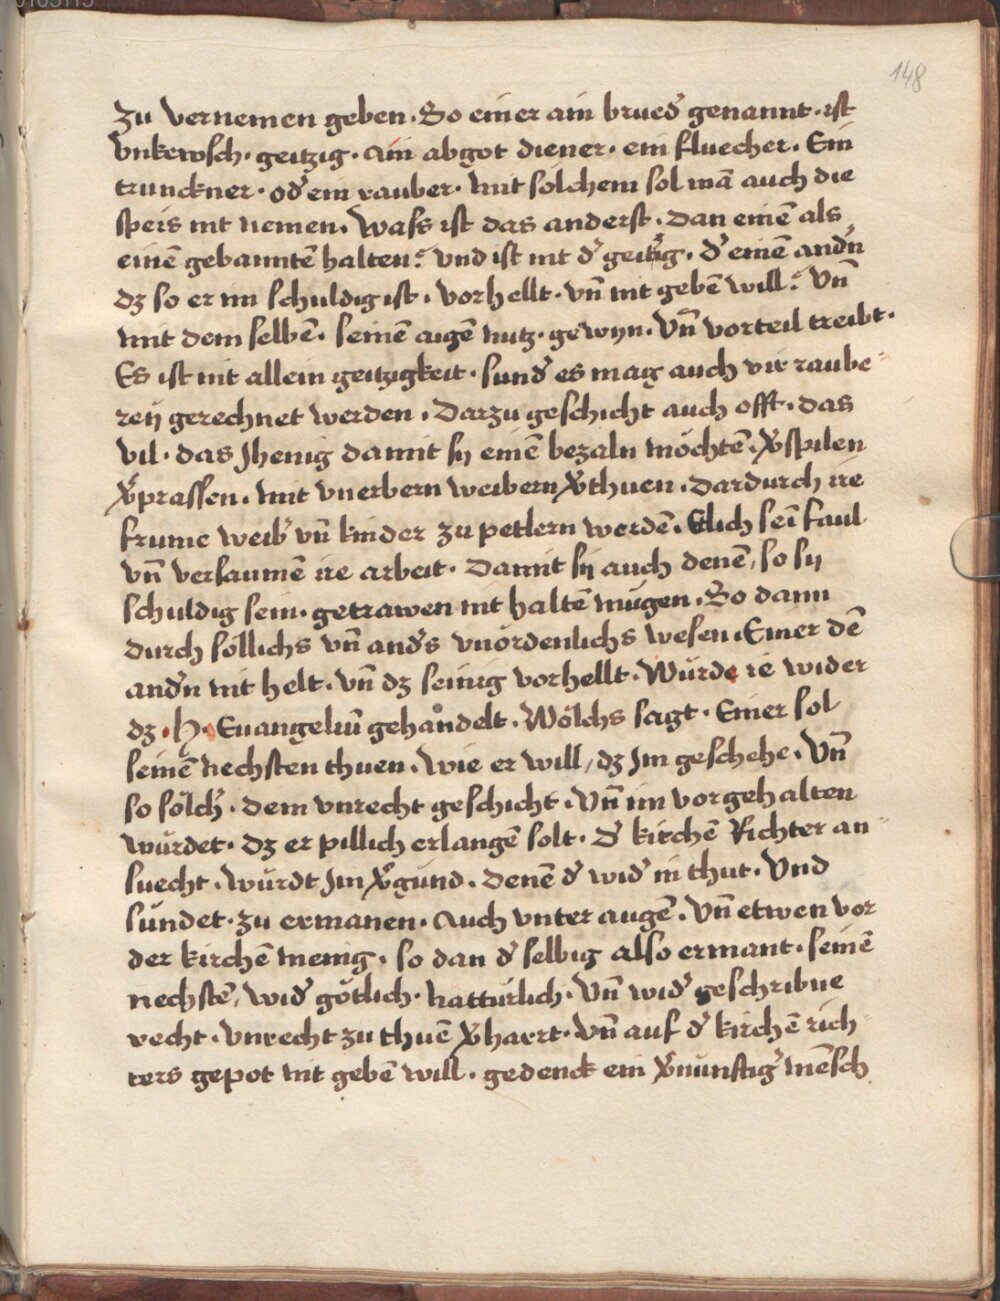 148
zu vernemen geben · So einer ain brued̕ genannt · ist
vnkewsch · geitzig · Ain abgot diener · ein fluecher · Ein
trunckner · od̕ ein rauber · mit solchem sol mā auch die
speis nit nemen · Wass ist das anderst · Dan einē als
einē gebanntē halten? vnd ist nit d̕ geitzig · d̕ einē and̕n
dz so er im schuldig ist · vorhellt · vn̄ nit gebē will? Vn̄
mit dem selbē · seinē aigē nutz · gewyn · Vn̄ vorteil treibt ·
Es ist nit allein geitzigkeit · sund̕ es mag auch vir raube⸗
reÿ gerechnet werden · Darzu geschicht auch offt · das
vil · das Jhenig damit sÿ einē bezaln möchtē · v̕spilen
v̕prassen · mit vnerbern weibern v̕thuen · Dardurch ire
frume weib̕ vn̄ kinder zu petlern werdē · Etlich sei̅ faul
vn̄ versaumē ire arbeit · Damit sÿ auch denē, so sÿ
schuldig sein · getrawen nit haltē mügen · So dann
durch söllichs vn̄ and̕s vnördenlichs wesen · Einer dē
and̕n nit helt · vn̄ dz seinig vorhellt · Würde ie wider
dz · H · Euangeliū gehandelt · Wölchs sagt · Einer sol
seinē nechsten thuen · wie er will, dz Jm geschehe · Vn̄
so sölch̕ · dem vnrecht geschicht · Vn̄ im vorgehalten
würdet · dz er pillich erlangē solt · d̕ kirchē Richter an⸗
suecht · würdt Jm v̕günd · denē d̕ wid̕ in thut · Vnd
sündet · zu ermanen · Auch vnter augē · vn̄ etwen vor
der kirchē menig · so dan d̕ selbig also ermant · seinē
nechstē, wid̕ götlich · nattürlich · Vn̄ wid̕ geschribne
recht · vnrecht zu thuē v̕harrt · vn̄ auf d̕ kirchē rich⸗
ters gepot nit gebē will · gedenck ein v̕nünstig̕ mēsch